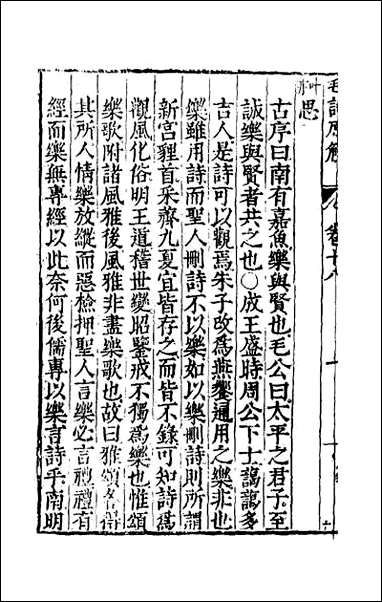 毛詩原解
卷十八
思
古序曰南有嘉魚樂與賢也毛公曰太平之君子至
誠樂與賢者共之也〇成王盛時周公下士藹藹多
吉人是詩可以觀焉朱子改爲燕饗通用之樂非也
樂雖用詩而聖人刪詩不以樂如以樂刪詩則所謂
新宮貍首采齊九夏宜皆存之而皆不錄可知詩爲
觀風化俗明王道稽世變昭鑒戒不獨爲樂也惟頌
樂歌附諸風雅後風雅非盡樂歌也故曰雅頌各得
其所人情樂放縱而惡檢押聖人言樂必言禮禮有
經而樂無專經以此奈何後儒專以樂言詩乎南明